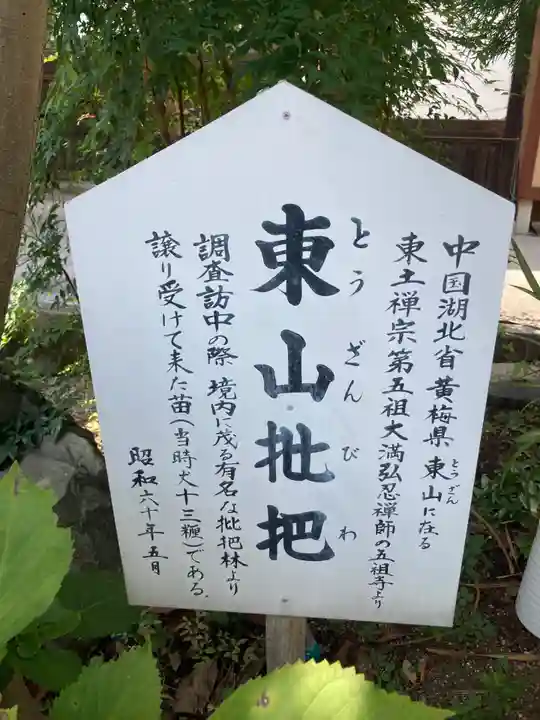 中国湖北省黄梅県 東山に在る
とうざん
東土禅宗第五祖大満弘忍禅師の五祖寺より
とうざんびわ
東山批把
調査訪中の際 境内に茂る有名な批把林より
譲り受けて来た苗(当時丈十三糎)である。
昭和六十年五月